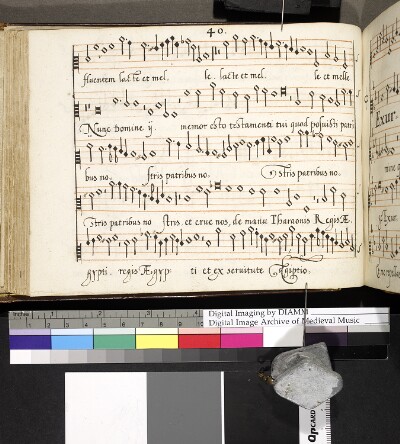 40.
fluentem lacte et mel. le. lacte et mel. le et melle
Nunc Domine ij. memor esto testamenti tui quod posuisti patri
bus no. stris patribus no. stris patribus no.
stris patribus no stris. et erue nos, de manu Pharaonis Regis Æ.
gypti. regis Ægyp ti et ex seruitute Egyptio.
Exur.
Inches 1 2 3 4 5 6 7 8
Digital Imaging by DIAMM
Digital Image Archive of Medieval Music
QPCARD